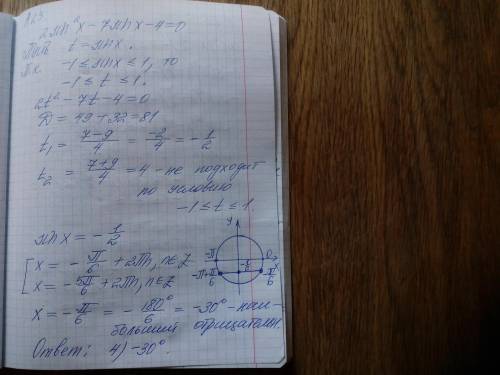 2sin²x-7sinx-4=0
Пусть t=sinx.
Т.к. -1≤sinx≤1, то
-1≤t≤1.
2t²-7t-4=0
D=49+32=81
t₁ = (7-9)/4 = -2/4 = -1/2
t₂ = (7+9)/4 = 4 - не подходит
по условию
-1≤t≤1.
sinx = -1/2
[ x = -π/6 + 2πn, n∈Z
x = -5π/6 + 2πn, n∈Z
y
-π 0 x
-1/2
-π+π/6 -π/6
x = -π/6 = -180°/6 = -30° - наи-
больший отрицательн.
Ответ: 4) -30°.